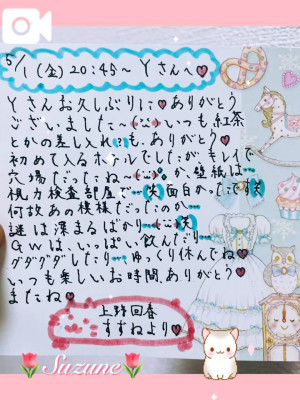 5/1(金)20:45～Yさんへ♥
Yさんお久しぶりに♥ありがとう
ございました～ いつも紅茶
とかの差し入れ も、ありがとう♥
初めて入るホテルでしたが、キレイで
穴場だったね～ が、壁紙は…
視力検査部屋で…笑 面白かったです笑
何故あの模様だったのか…
謎は深まるばかり… 笑
GWは、いっぱい飲んだり…
グダグダしたり…ゆっくり休んでね♥
いつも楽しいお時間、ありがとう♥
またね♥
上野回春
すずねより♥
Suzune